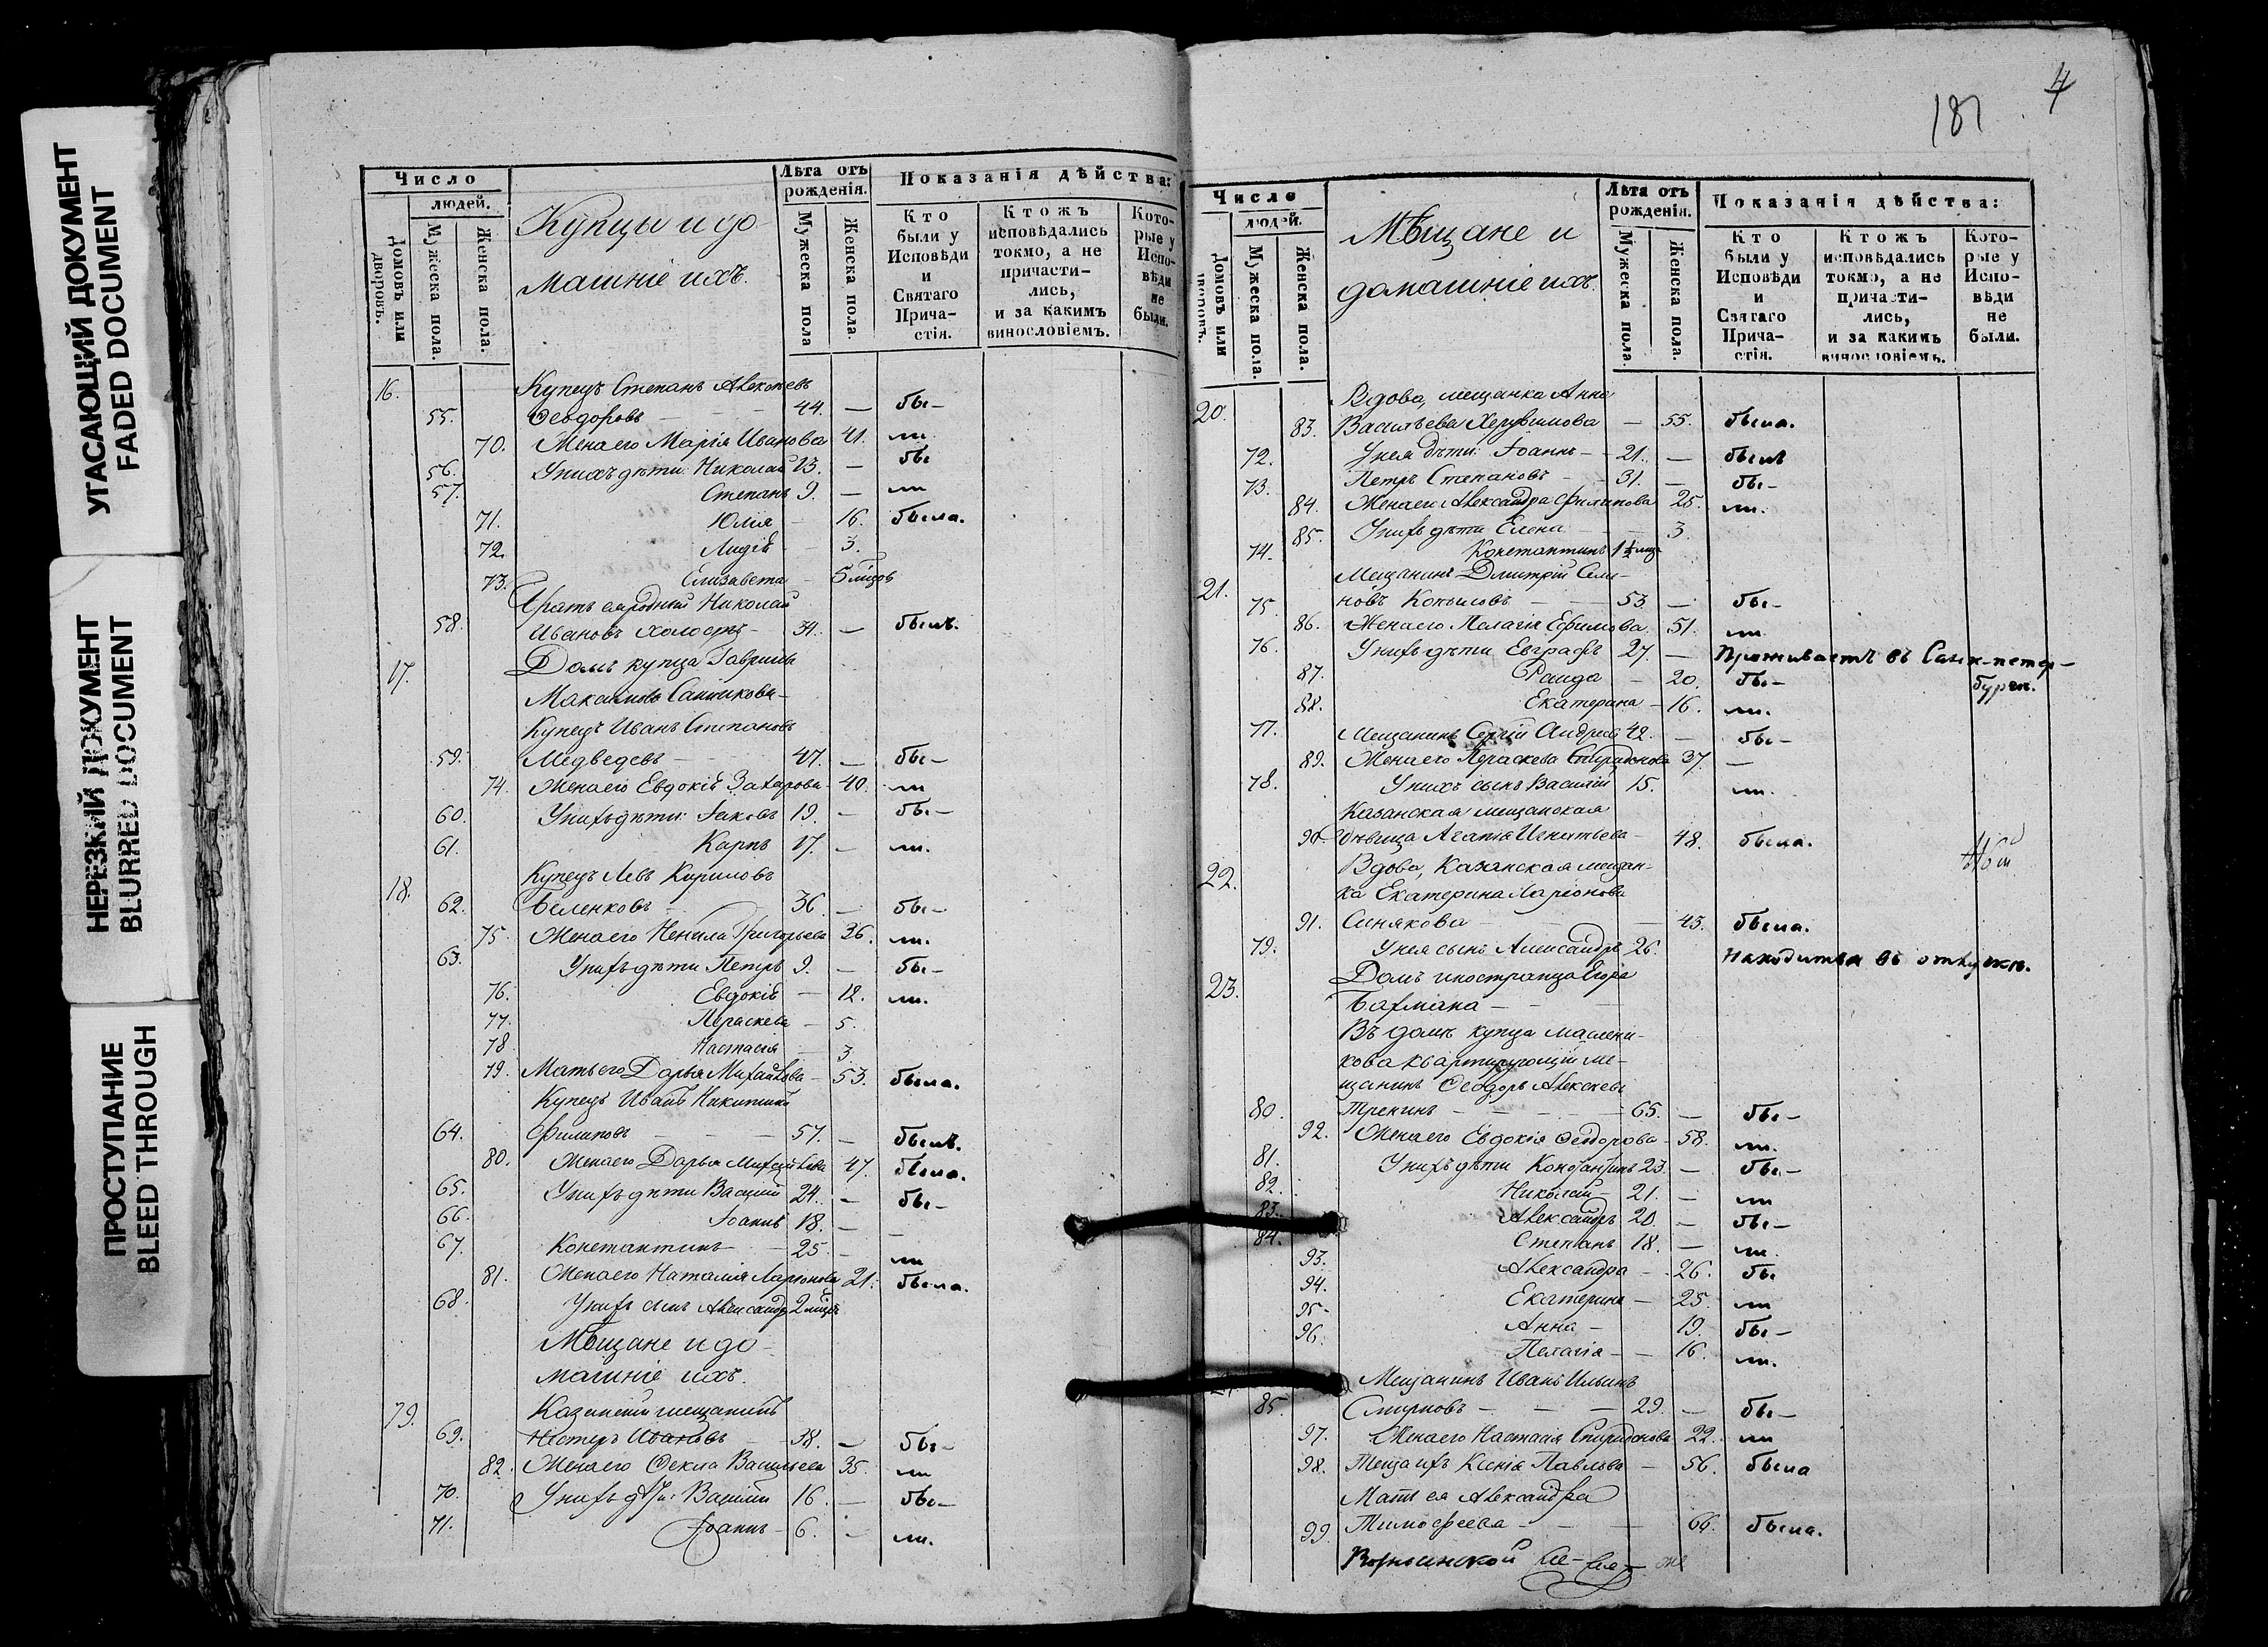 УГАСАЮЩИЙ ДОКУМЕНТ
FADED DOCUMENT
НЕРЕЗКИЙ ДОКУМЕНТ
BLURRED DOCUMENT
ПРОСТУПАНИЕ
BLEED THROUGH
Число
людей.
Домовъ или дворовъ.
Мужеска пола.
Женска пола.
Купцы и до-
машніе ихъ.
Лѣта отъ рожденія.
Мужеска пола
Женска пола.
Показанія дѣйства:
Кто были у Исповѣди и Святаго Прича-стія.
Ктожъ исповѣдались токмо, а не причасти-лись, и за какимъ винословіемъ.
Кото-рые у Испо-вѣди не были.
16. Купецъ Степанъ Алексѣевъ
55. Ѳеодоровъ — 44. — бы-
70. Жена его Марія Иванова 41. ли
56. У нихъ дѣти: Николай 13. — бы
57. Степанъ 9. — ли
71. Юлія — 16. была.
72. Лидія — 3.
73. Елизавета — 5 мѣсцов
Братъ ея родный Николай
58. Ивановъ холостъ — 31. — былъ.
17. Домъ купца Гаврилы
Максимова Санникова —
Купецъ Иванъ Степановъ
59. Медведевъ — 47. — бы-
74. Жена его Евдокія Захарова — 40. ли
60. У нихъ дѣти: Іаковъ 19. — бы-
61. Карпъ 17. — ли.
18. Купецъ Левъ Кириловъ
62. Беленковъ — 36. — бы-
75. Жена его Ненила Григорьева 36. ли.
63. У нихъ дѣти Петръ 9. — бы-
76. Евдокія — 12. ли.
77. Параскева — 5.
78 Настасія — 3
79. Мать его Дарья Михайлова — 53. была.
Купецъ Иванъ Никитинъ
64. Филиповъ — 57. — былъ.
80. Жена его Дарья Михайлова 47. была.
65. У нихъ дѣти Василій 24. — бы-
66. Іоаннъ 18. — —
67. Константинъ — 25. — ли
81. Жена его Наталія Ларіонова 21. была.
68. У нихъ сынъ Александръ 2 мѣсц
Мѣщане и до-
машніе ихъ.
19. Казанскій мещанинъ
69. Нестеръ Ивановъ — 38. — бы-
82. Жена его Ѳекла Васильева 35. ли
70. У нихъ дѣти: Василій 16. — бы-
71. Іоаннъ — 6. — ли.
181 4
Число
людей.
Домовъ или дворовъ.
Мужеска пола.
Женска пола.
Мѣщане и
домашніе ихъ.
Лѣта отъ рожденія.
Мужеска пола.
Женска пола.
Показанія дѣйства:
Кто были у Исповѣди и Святаго Прича-стія.
Ктожъ исповѣдались токмо, а не причасти-лись, и за какимъ винословіемъ.
Кото-рые у Испо-вѣди не были.
20. Вдова, мещанка Анна
83. Васильева Херувимова — 55. была.
72. У нея дѣти: Іоаннъ — 21. — былъ
73. Петръ Степановъ — 31. — бы-
84. Жена его Александра Филипова 25. ли.
85. У нихъ дѣти Елена — 3.
74. Константинъ 1½ мц
21. Мещанинъ Дмитрій Семе-
75. новъ Копыловъ — 53. — бы-
86. Жена его Пелагія Ефимова 51. ли
76. У нихъ дѣти Евграфъ 27. — Проживаетъ въ Санк-петер-
87. Раида — 20. бы- бурге.
88. Екатерина — 16. ли.
77. Мещанинъ Сергій Андреев 42. — бы-
89. Жена его Параскева Спиридонова 37. —
78. У нихъ сынъ Василій 15. ли.
Казанская мещанская
90. дѣвица Агапія Игнатьева — 48. была.
22. Вдова, Казанская мещан-
ка Екатерина Ларіонова
91. Синякова — 43. была.
79. У нея сынъ Александръ 26. находится въ отлучке.
23. Домъ иностранца Егора
Бахмана —
Въ доме купца Маслени-
кова квартирующій ме-
щанинъ Ѳеодоръ Алексеевъ
80. Трекинъ — 65. — бы-
92. Жена его Евдокія Ѳеодорова — 58. ли.
81. У нихъ дѣти Константинъ 23. — бы-
82. Николай — 21. — ли
83. Александръ 20. — бы-
84. Степанъ 18. — ли.
93. Александра — 26. бы
94. Екатерина — 25. ли
95. Анна — 19. бы-
96. Пелагіа — 16. ли.
Мещанинъ Иванъ Ильинъ
85. Смирновъ — 29. — бы-
97. Жена его Настасія Спиридонова 22. ли
98. Теща ихъ Ксенія Павлова — 56. была
Мать ея Александра
99 Тимоѳеева — 66. была.